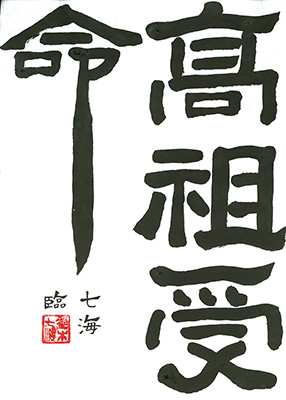 高祖受
命
七海
臨